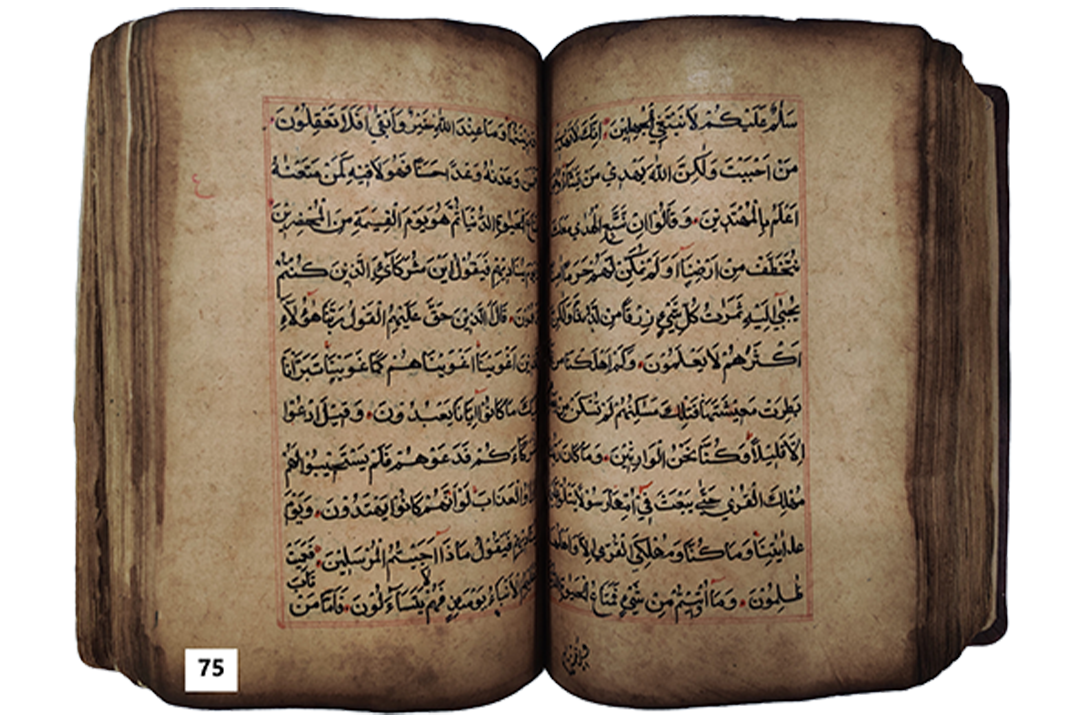 سَلٰمٌ عَلَيْكُمْ لَا نَبْتَغِي الْجٰهِلِينَ اِنَّكَ لَا تَهْدِي
مَنْ اَحْبَبْتَ وَلٰكِنَّ اللّٰهَ يَهْدِي مَنْ يَشَآءُ
اَعْلَمُ بِالْمُهْتَدِينَ وَقَالُوا اِنْ نَتَّبِعِ الْهُدٰي مَعَكَ
نُتَخَطَّفْ مِنْ اَرْضِنَا اَوَلَمْ نُمَكِّنْ لَهُمْ حَرَمًا
يُجْبٰي اِلَيْهِ ثَمَرٰتُ كُلِّ شَيْءٍ رِزْقًا مِنْ لَدُنَّا وَلٰكِنَّ
اَكْثَرَهُمْ لَا يَعْلَمُونَ وَكَمْ اَهْلَكْنَا مِنْ
بَطِرَتْ مَعِيشَتَهَا فَتِلْكَ مَسٰكِنُهُمْ لَمْ تُسْكَنْ مِنْ
اِلَّا قَلِيلًا وَكُنَّا نَحْنُ الْوَارِثِينَ وَمَا كَانَ
مُهْلِكَ الْقُرٰي حَتّٰي يَبْعَثَ فِي اُمِّهَا رَسُولًا يَتْلُوا
اٰيٰتِنَا وَمَا كُنَّا مُهْلِكِي الْقُرٰي اِلَّا وَاَهْلُهَا
ظٰلِمُونَ وَمَا اُوتِيتُمْ مِنْ شَيْءٍ فَمَتَاعُ الْحَيٰوةِ
وَزِينَتُهَا وَمَا عِنْدَ اللّٰهِ خَيْرٌ وَاَبْقٰي اَفَلَا تَعْقِلُونَ
وَعَدْنٰهُ وَعْدًا حَسَنًا فَهُوَ لَاقِيهِ كَمَنْ مَتَّعْنٰهُ
مَتَاعَ الْحَيٰوةِ الدُّنْيَا ثُمَّ هُوَ يَوْمَ الْقِيٰمَةِ مِنَ الْمُحْضَرِينَ
يُنَادِيهِمْ فَيَقُولُ اَيْنَ شُرَكَآءِيَ الَّذِينَ كُنْتُمْ
قَالَ الَّذِينَ حَقَّ عَلَيْهِمُ الْقَوْلُ رَبَّنَا هٰٓؤُلَآءِ
الَّذِينَ اَغْوَيْنَا اَغْوَيْنَاهُمْ كَمَا غَوَيْنَا تَبَرَّاْنَا
اِلَيْكَ مَا كَانُوا اِيَّانَا يَعْبُدُونَ وَقِيلَ ادْعُوا
شُرَكَآءَكُمْ فَدَعَوْهُمْ فَلَمْ يَسْتَجِيبُوا لَهُمْ
وَرَاَوُا الْعَذَابَ لَوْ اَنَّهُمْ كَانُوا يَهْتَدُونَ وَيَوْمَ
يُنَادِيهِمْ فَيَقُولُ مَاذَا اَجَبْتُمُ الْمُرْسَلِينَ فَعَمِيَتْ
عَلَيْهِمُ الْاَنْبَآءُ يَوْمَئِذٍ فَهُمْ لَا يَتَسَآءَلُونَ فَاَمَّا مَنْ تَابَ
75